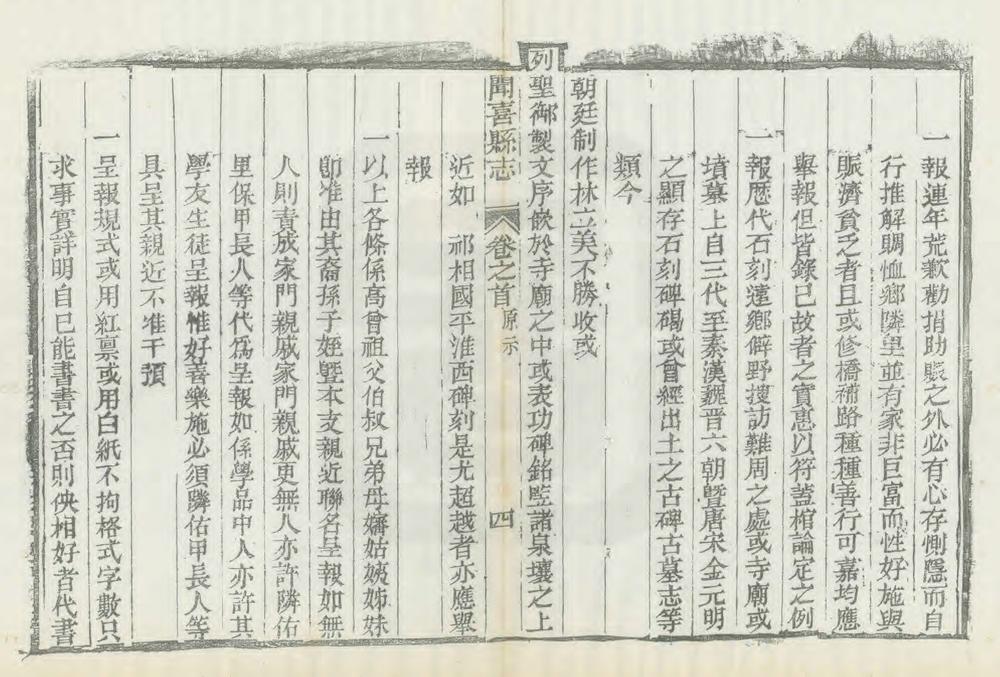 一報連年荒歉勸捐助賑之外必有心存惻隱而自
行推解賙恤鄉隣里並有家非巨富而性好施與
賑濟貧乏者且或修橋補路種種善行可嘉均應
舉報但皆錄已故者之實惠以符蓋棺論定之例
一報歷代石刻遠鄉僻野搜訪難周之處或寺廟或
墳墓上自三代至秦漢魏晋六朝暨唐宋金元明
之顯存石刻碑碣或曾經出土之古碑古墓志等
類今
朝廷制作林立美不勝收或
列聖御製文序嵌於寺廟之中或表功碑銘監諸泉壤之上
聞喜縣志 卷之首 原示 四
近如 祁相國平淮西碑刻是尤超越者亦應舉
報
一以上各條係高曾祖父伯叔兄弟母嬸姑姨姊妹
卽准由其裔孫子姪暨本支親近聯名呈報如無
人則責成家門親戚家門親戚更無人亦許隣佑
里保甲長人等代爲呈報如係學品中人亦許其
學友生徒呈報惟好善樂施必須隣佑甲長人等
具呈其親近不准干預
一呈報規式或用紅禀或用白紙不拘格式字數只
求事實詳明自己能書書之否則倩相好者代書